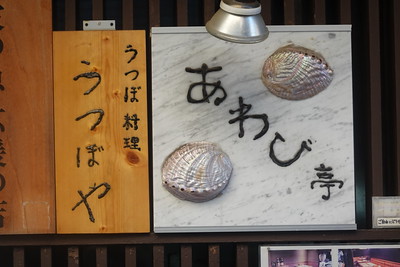 うつぼ料理
うつぼや
あわび亭